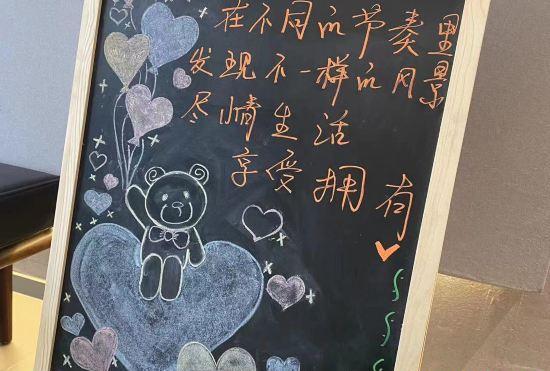 在不同的节奏里
发现不一样的风景
尽情生活
享受拥有